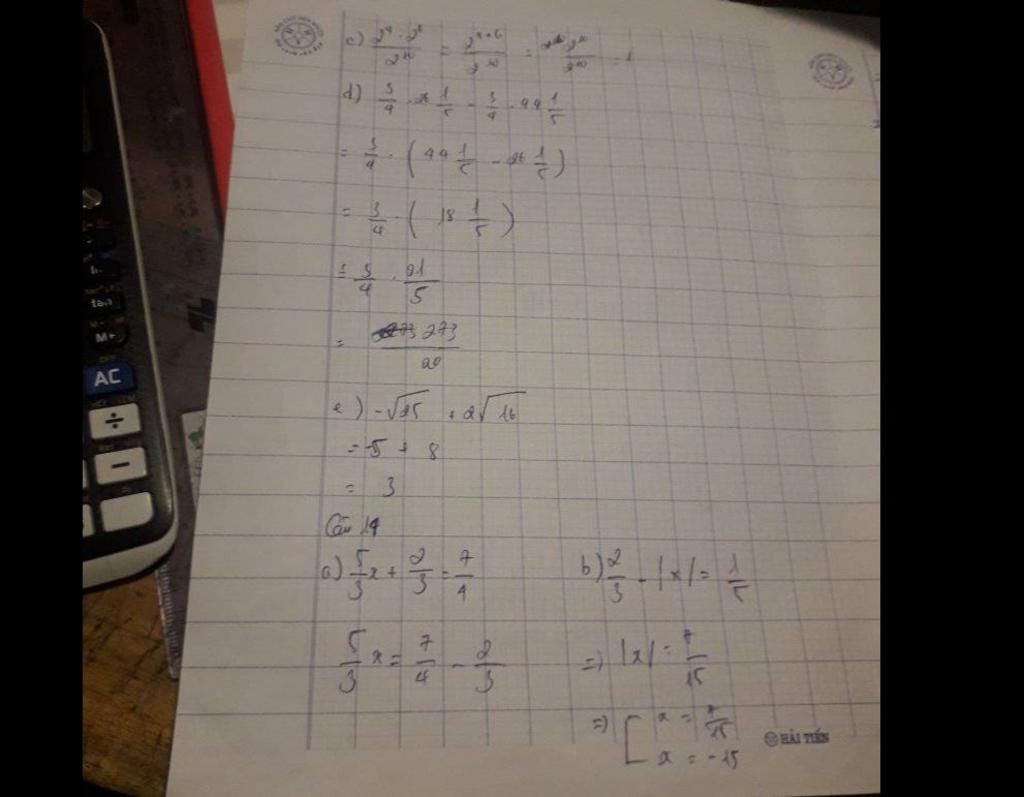 c) 2^4 . 2^6 / 2^10 = 2^(4+6) / 2^10 = 2^10 / 2^10 = 1
d) 3/4 . 26 1/5 - 3/4 . 44 1/5
= 3/4 . ( 44 1/5 - 26 1/5 )
= 3/4 . ( 18 1/5 )
= 3/4 . 91/5
= 273/20
e) -√25 + 2√16
= -5 + 8
= 3
Câu 14
a) 5/3 x + 2/3 = 7/4
b) 2/3 - |x| = 1/5
5/3 x = 7/4 - 2/3
=> |x| = 7/15
=> [ x = 7/15
x = -15
HẢI TIẾN
AC
÷
−
M+
tan